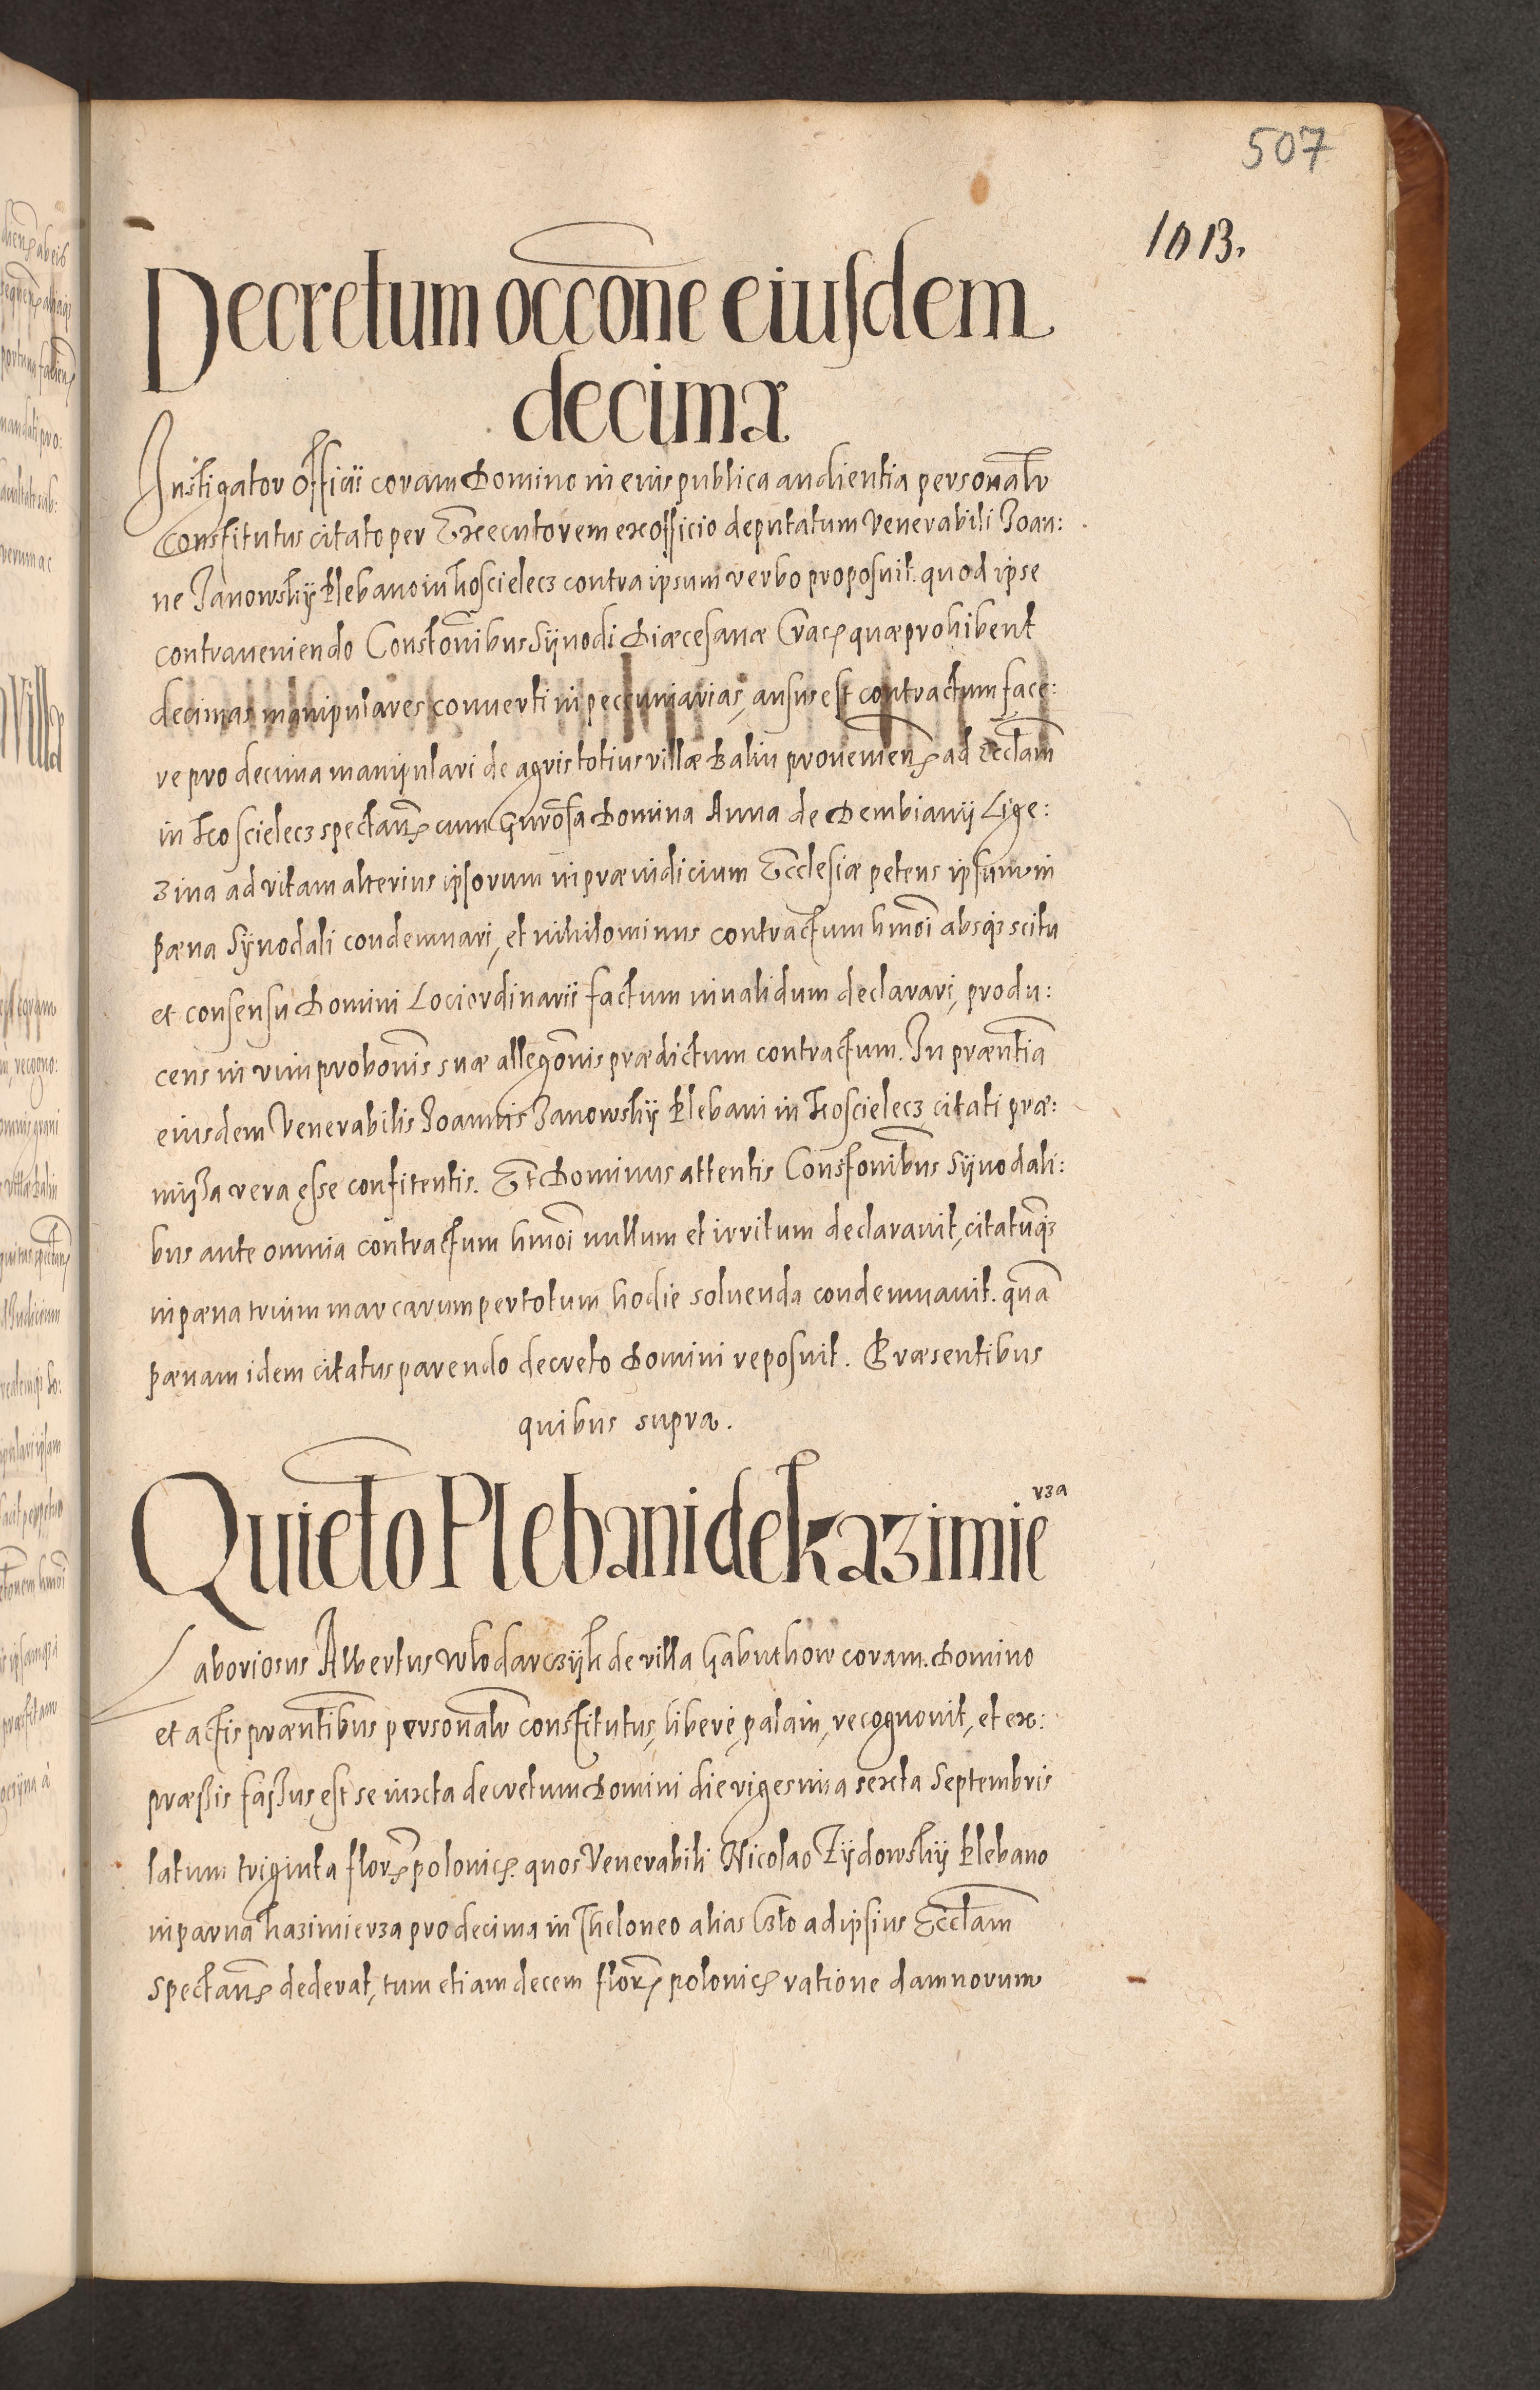 507
1013.
Decretum occōne eiusdem
decimæ
Instigator Officii coram Domino in eius publica audientia personalr̄
Constitutus citato per Executorem ex officio deputatum Venerabili Joan:
ne Janowsky Plebano in Koscielecz contra ipsum verbo proposuit. quod ipse
contraveniendo Constōnibus Synodi Diæcesanæ Crac. quæ prohibent
decimas manipulares converti in peccuniarias, ausus est contractum face:
re pro decima manipulari de agris totius villæ Balin provenien. ad Ecclām
in Koscielecz spectan. cum Gnrōsa Domina Anna de Dembiany Lige:
zina ad vitam alterius ipsorum in præiudicium Ecclesiæ petens ipsum in
pæna Synodali condemnari, et nihilominus contractum hmōi absq3 scitu
et consensu Domini Loci ordinarii factum invalidum declarari, produ:
cens in vim probōnis suæ allegōnis prædictum contractum. In præntia
eiusdem Venerabilis Joannis Janowsky Plebani in Koscielecz citati præ:
missa vera esse confitentis. Et Dominus attentis Constōnibus Synodali:
bus ante omnia contractum hmōi nullum et irritum declaravit, citatūq3
in pæna trium marcarum per totum hodie solvenda condemnavit. quā
pænam idem citatus parendo decreto Domini reposuit. Præsentibus
quibus supra.
Quietō Plebani de Kazimie
rza
Laboriosus Albertus Wlodarczyk de villa Gabulthow coram Domino
et actis præntibus personalr̄ constitutus, libere, palam, recognovit, et ex:
præssis fassus est se iuxta decretum Domini die vigesima sexta Septembris
latum triginta flor. polonic. quos Venerabili Nicolao Zydowsky Plebano
in parva Kazimierza pro decima in Theloneo alias Cło ad ipsius Ecclām
spectan. dederat, tum etiam decem flor. polonic. ratione damnorum